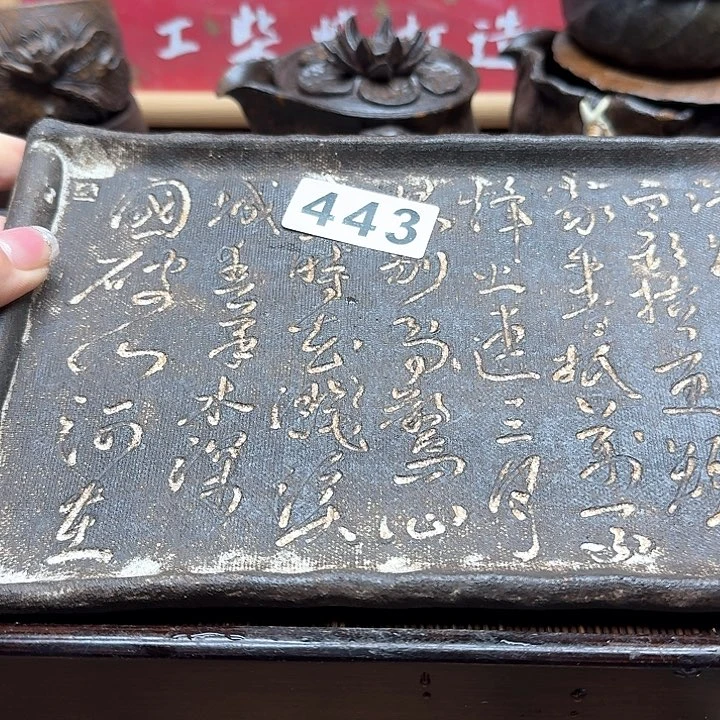 工柴燒 造
443
國破山河在
城春草木深
時花濺淚
別鳥驚心
烽火連三月
家書抵萬金
白頭搔更短